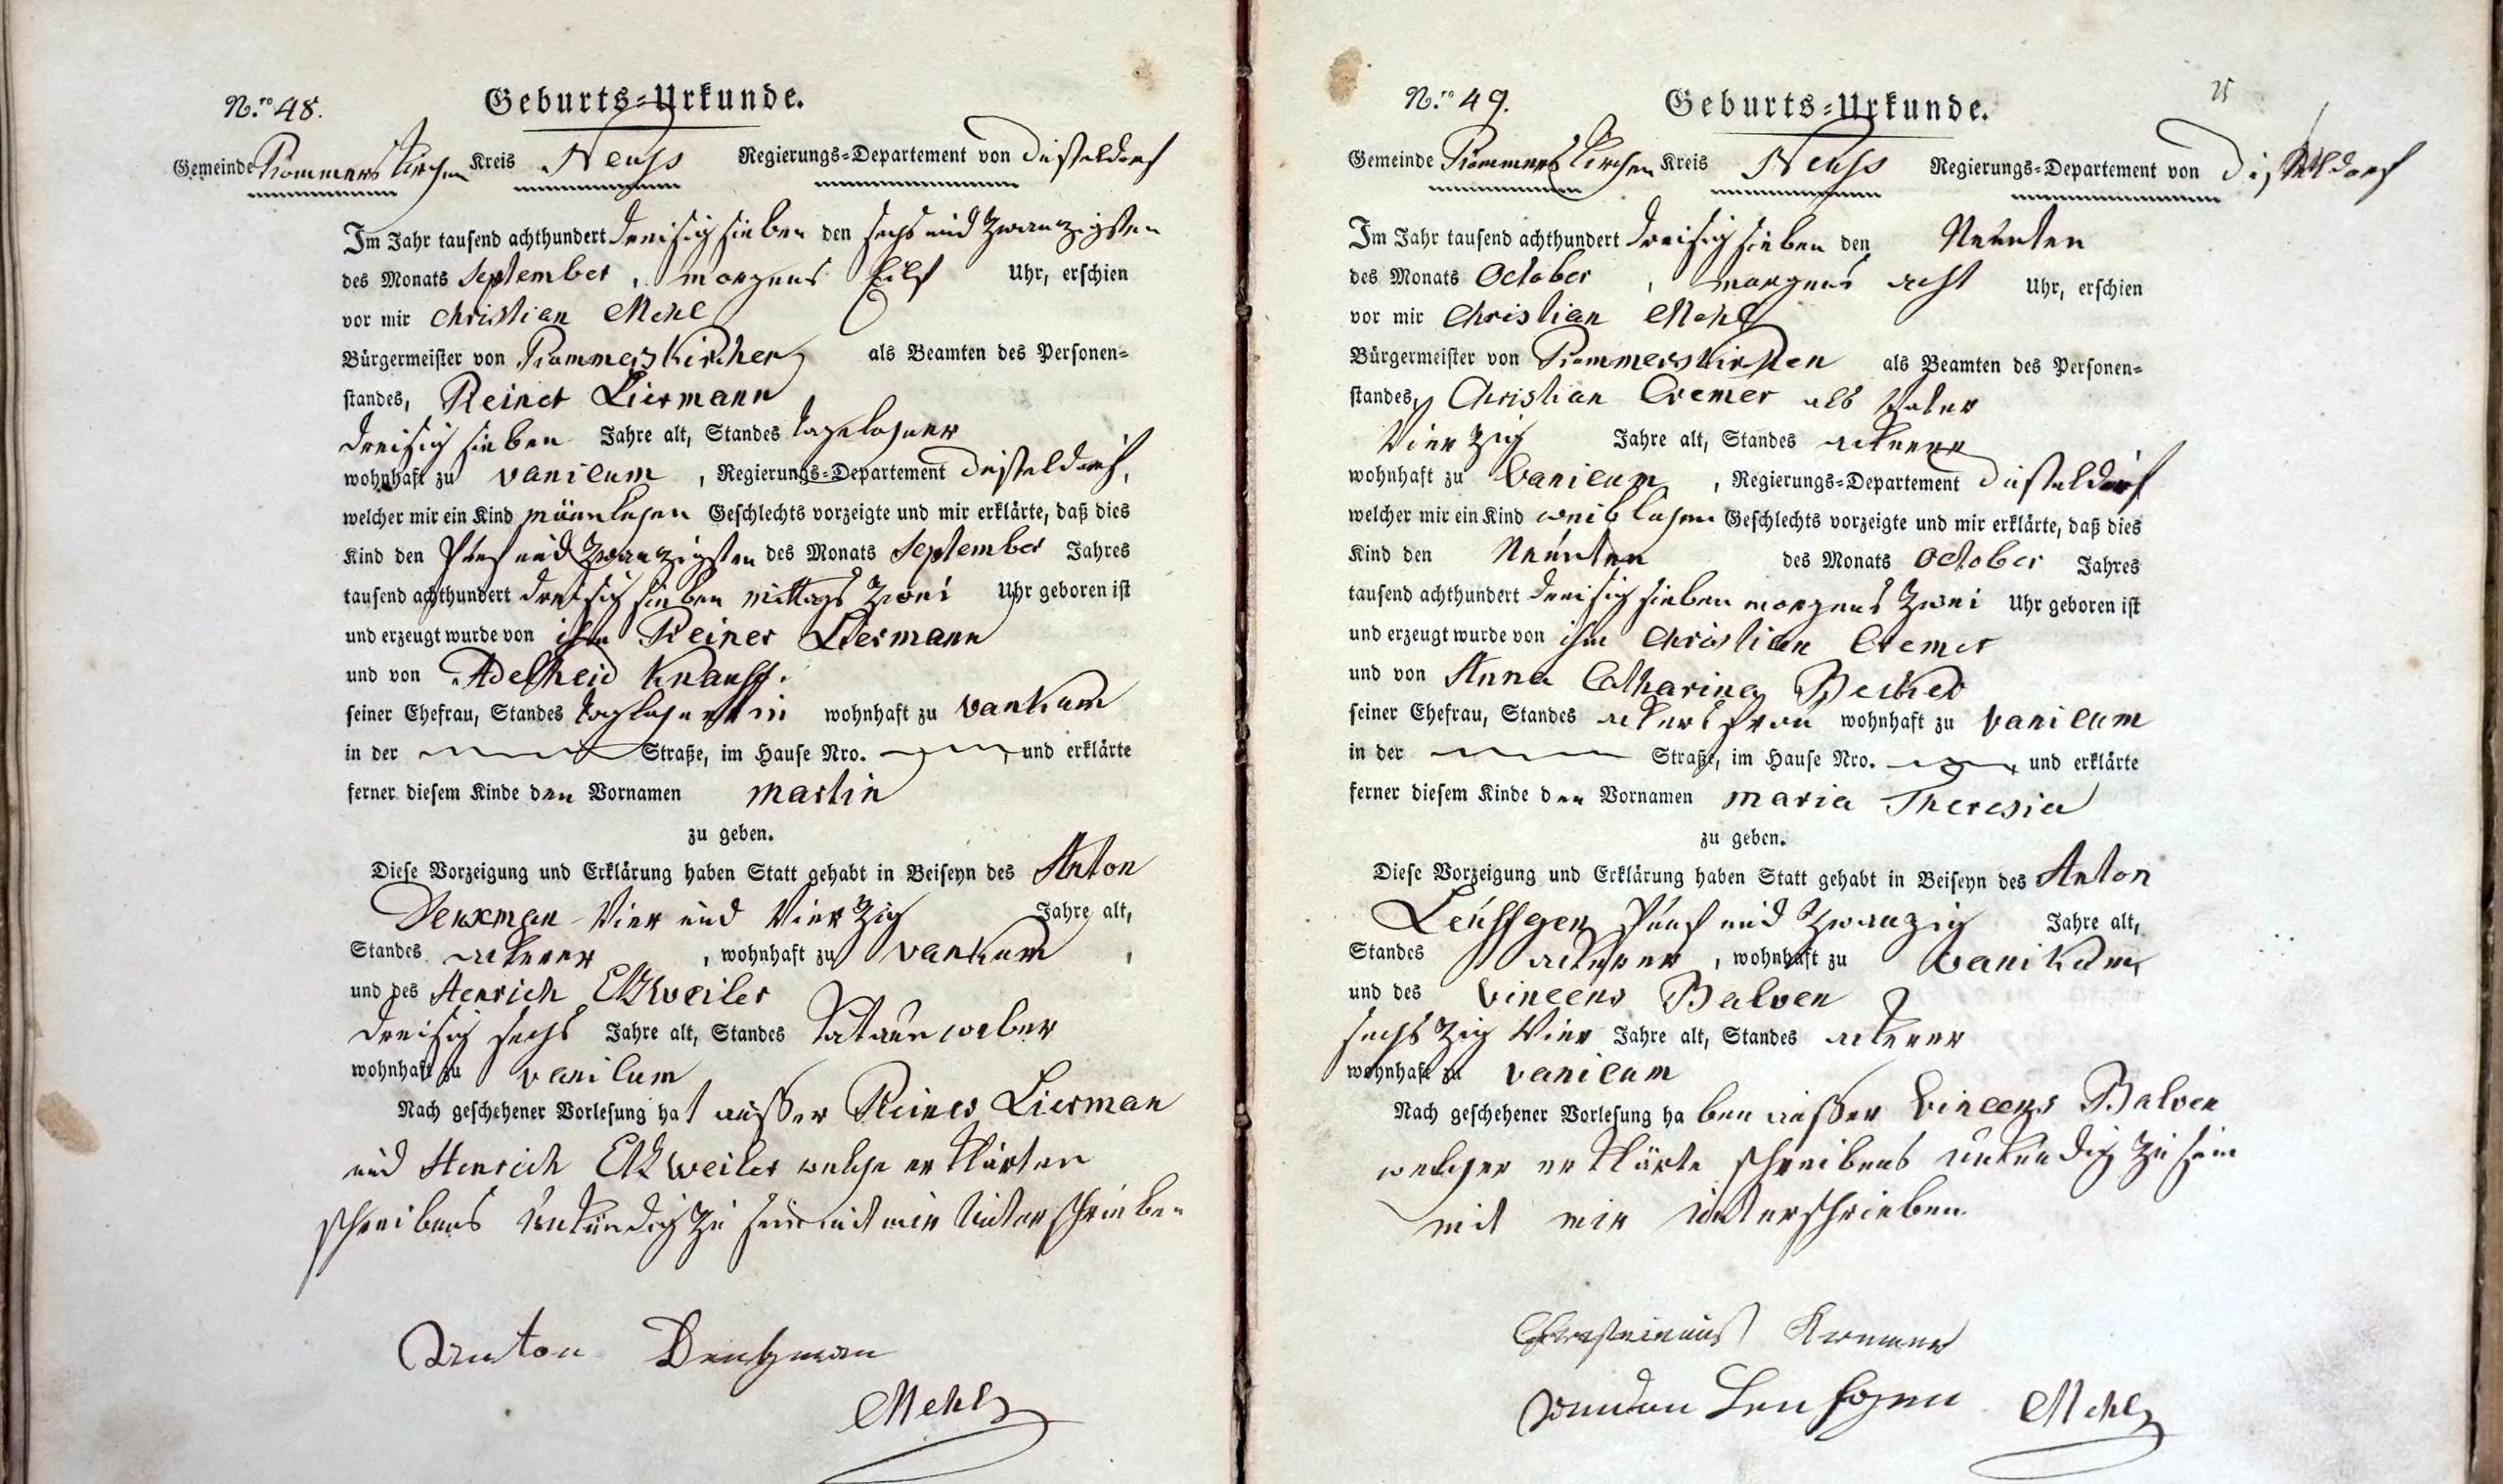 N.ro 48.
Geburts-Urkunde.
Gemeinde Rommerskirchen Kreis Neuss Regierungs-Departement von Düsseldorf
Im Jahr tausend achthundert dreisig sieben den sechs und zwanzigsten
des Monats September, morgens Eilf Uhr, erschien
vor mir Christian Mehl
Bürgermeister von Rommerskirchen als Beamten des Personen-
standes, Reiner Liermann
dreisig sieben Jahre alt, Standes Tagelohner
wohnhaft zu vanicum, Regierungs-Departement Düsseldorf,
welcher mir ein Kind männlichen Geschlechts vorzeigte und mir erklärte, daß dies
Kind den fünf und zwanzigsten des Monats September Jahres
tausend achthundert dreisig sieben mittags zwei Uhr geboren ist
und erzeugt wurde von ihm Reiner Liermann
und von Adelheid Knauff.
seiner Ehefrau, Standes wohnhaft zu vankum
in der Straße, im Hause Nro. und erklärte
ferner diesem Kinde den Vornamen Martin
zu geben.
Diese Vorzeigung und Erklärung haben Statt gehabt in Beiseyn des Anton
Denkman vier und vierzig Jahre alt,
Standes Ackerer, wohnhaft zu vankum,
und des Henrich Etzweiler
dreisig sechs Jahre alt, Standes
wohnhaft zu vanicum
Nach geschehener Vorlesung hat außer Reiner Lierman
und Henrich Etzweiler welche erklärten
schreibens unkündig zu sein mit mir unterschrieben
Anton
Mehl
N.ro 49.
Geburts-Urkunde.
25
Gemeinde Rommerskirchen Kreis Neuss Regierungs-Departement von Düsseldorf
Im Jahr tausend achthundert dreisig sieben den Neunten
des Monats October, morgens acht Uhr, erschien
vor mir Christian Mehl
Bürgermeister von Rommerskirchen als Beamten des Personen-
standes, Christian Cremer als Vater
vierzig Jahre alt, Standes Ackerer
wohnhaft zu Vanicum, Regierungs-Departement Düsseldorf
welcher mir ein Kind weiblichen Geschlechts vorzeigte und mir erklärte, daß dies
Kind den Neunten des Monats October Jahres
tausend achthundert dreisig sieben morgens zwei Uhr geboren ist
und erzeugt wurde von ihm Christian Cremer
und von Anna Catharina Becker
seiner Ehefrau, Standes Ackersfrau wohnhaft zu vanicum
in der Straße, im Hause Nro. und erklärte
ferner diesem Kinde den Vornamen Maria Theresia
zu geben.
Diese Vorzeigung und Erklärung haben Statt gehabt in Beiseyn des Anton
Leuffgen fünf und zwanzig Jahre alt,
Standes Ackerer, wohnhaft zu Vanikum
und des Vincens Balven
sechszig vier Jahre alt, Standes Ackerer
wohnhaft zu vanicum
Nach geschehener Vorlesung haben außer Vincens Balven
welcher erklärte schreibens unkündig zu sein
mit mir unterschrieben
Mehl